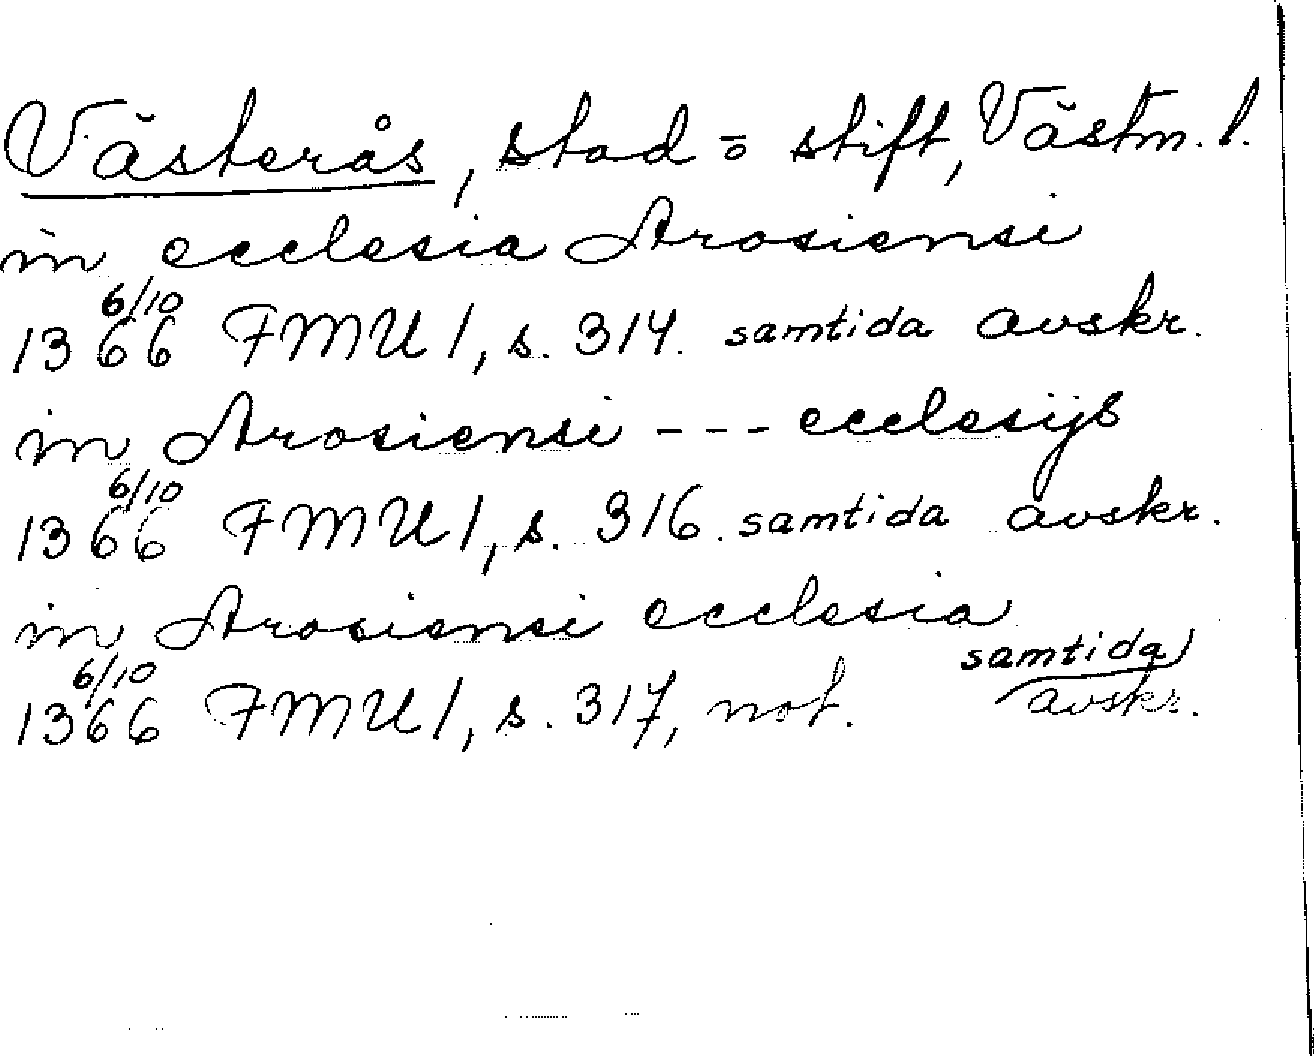 Västerås, stad o stift, Västm. l.
in ecclesia Arosiensi
1366 6/10 FMU 1, s. 314. samtida avskr.
in Arosiensi --- ecclesijs
1366 6/10 FMU 1, s. 316. samtida avskr.
in Arosiensi ecclesia
1366 6/10 FMU 1, s. 317, not. samtida avskr.